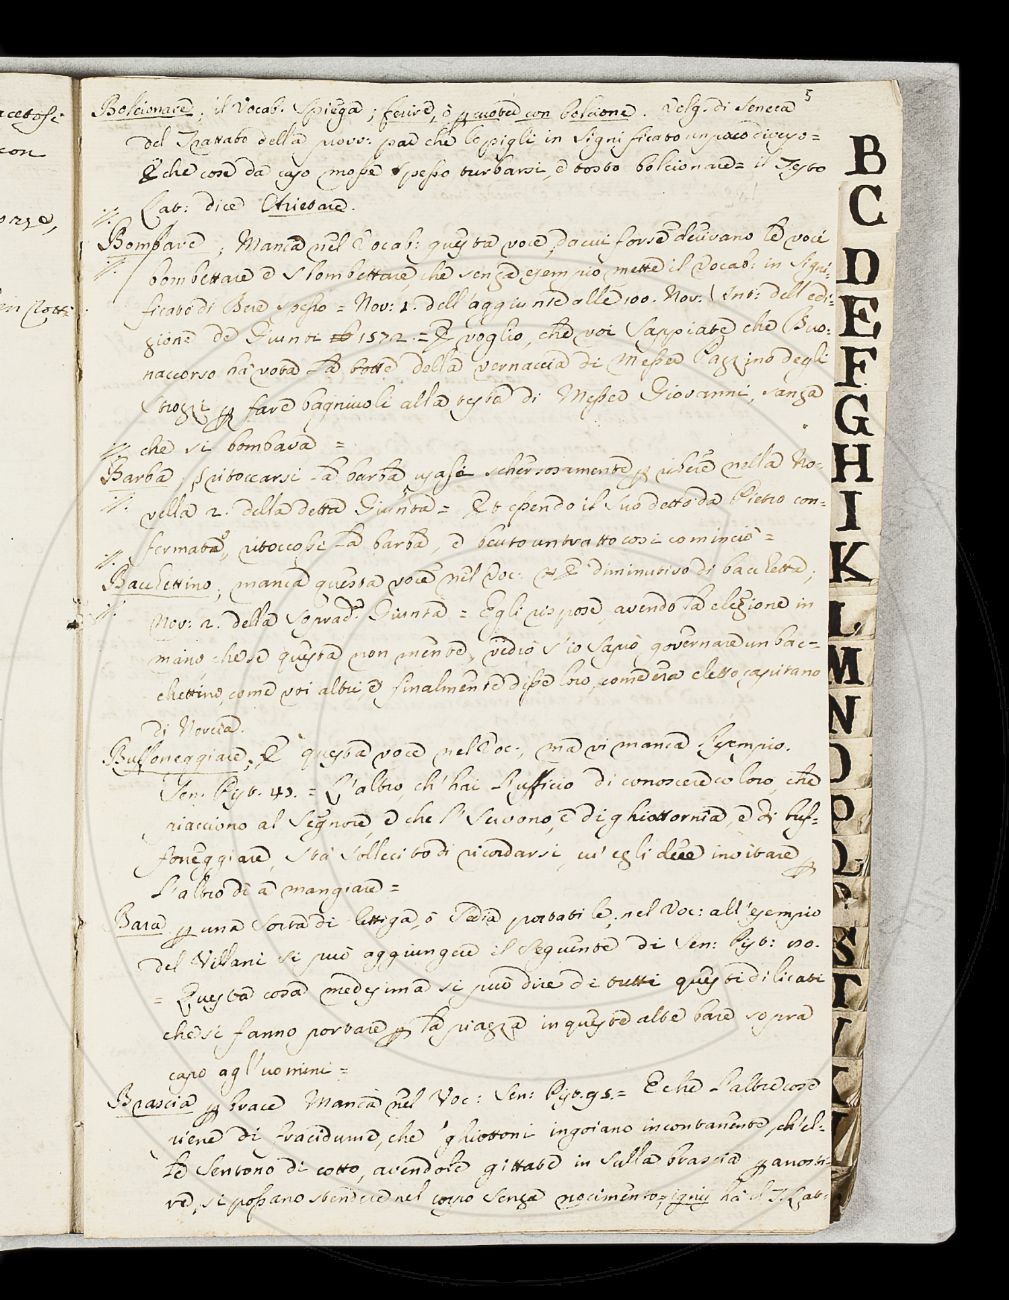 5
Bolcionare; il Vocab: spiega; ferire, ò percuotere con bolcione. Volg. di Seneca
del Trattato della provv: par che lo pigli in significato un poco diverso =
E che cose da caso mosse spesso turbarsi, e tosto bolcionare = il Testo
Lat: dice Arietare.
Bombare; Manca nel Vocab: questa voce, da cui forse derivano le voci
bombettare e sbombettare, che senza esempio mette il Vocab: in signi-
ficato di Bere spesso = Nov: 1. dell'aggiunte alle 100. Nov: Ant: dell'edi-
zione de Giunti 1572. = E voglio, che voi sappiate che Buo-
naccorso ha vota la botte della vernaccia di Messer Pazzino degli
Strozzi per fare bagniuoli alla testa di Messer Giovanni, sanza
che si bombava =
Barba, ritoccarsi la barba usasi scherzosamente per ubere nella No-
vella 2. della detta Giunta = Et essendo il suo detto da Pietro con-
fermato, ritoccossi la barba, e beuto un tratto così cominciò =
Bacchettino; manca questa voce nel Voc: ed è diminutivo di bacchetta;
Nov: 2. della soprad.ª Giunta = Egli rispose avendo la elezione in
mano che se questa non mente, vedrò s'io saprò governare un bac-
chettino, come voi altri, e finalmente disse loro, com'era eletto capitano
di Norcia.
Buffoneggiare; È questa voce nel Voc:, ma vi manca l'esempio.
Sen. Pist. = L'altro, ch'hai l'ufficio di conoscere coloro, che
piacciono al Segnore, e che l'servono, e di ghiottornia, e di buf-
foneggiare, sta sollecito di ricordarsi, cu' egli deve invitare per
l'altro dì a mangiare =
Bara per una sorta di lettiga, ò sedia portatile; nel Voc: all'esempio
del Villani si può aggiungere il seguente di Sen: Pist:
= Questa cosa medesima si può dire di tutti questi dilicati
che si fanno portare per la piazza in queste alte bare sopra
capo agl'uomini =
Brascia per brace Manca nel Voc: Sen: Pist. 95. = E che l'altre cose
piene di fracidume, che i ghiottoni ingoiano incontanente, ch'el-
le sentono di cotto, avendole gittate in sulla brascia per arosti-
re, si possano stendere nel corpo senza nocimento = ignis ha il T. Lat:
B
C
D
E
F
G
H
I
K
L
M
N
O
P
Q
R
S
T
V
X